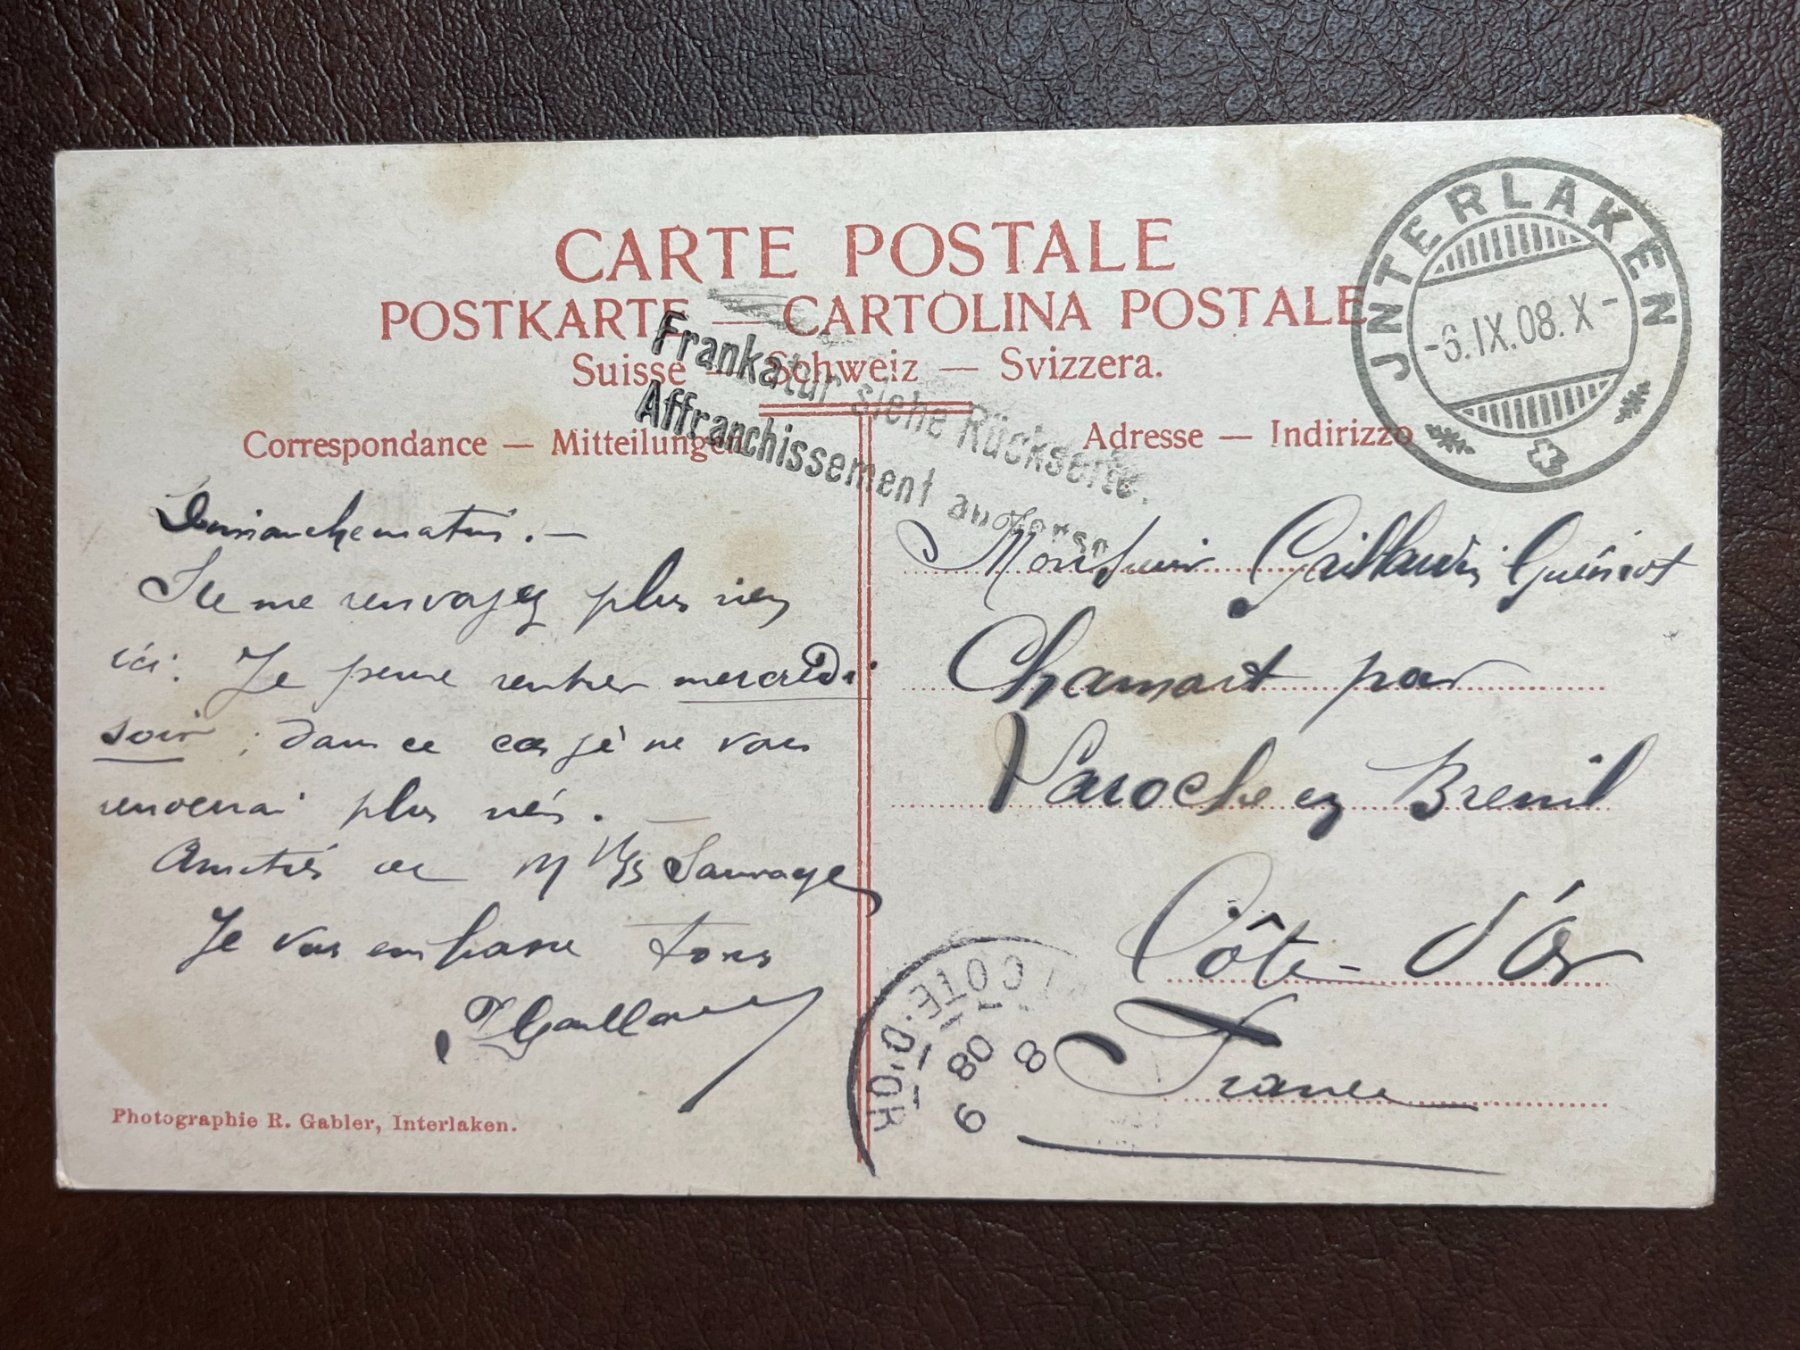 CARTE POSTALE
POSTKARTE — CARTOLINA POSTALE
Suisse — Schweiz — Svizzera.
Frankatur siehe Rückseite.
Affranchissement au verso
JNTERLAKEN
-6.IX.08.X-
Correspondance — Mitteilungen
Dimanche matin. —
Ne me renvoyez plus rien
ici: Je pense rentrer mercredi
soir; dans ce cas je ne vous
renverrai plus rien. —
Amitiés de M Sauvage
Je vous embrasse tous
Photographie R. Gabler, Interlaken.
Adresse — Indirizzo
Monsieur Guéniot
Chamart par
Laroche en Brenil
Côte-d'Or
France
COTE-D'OR
8
9 08